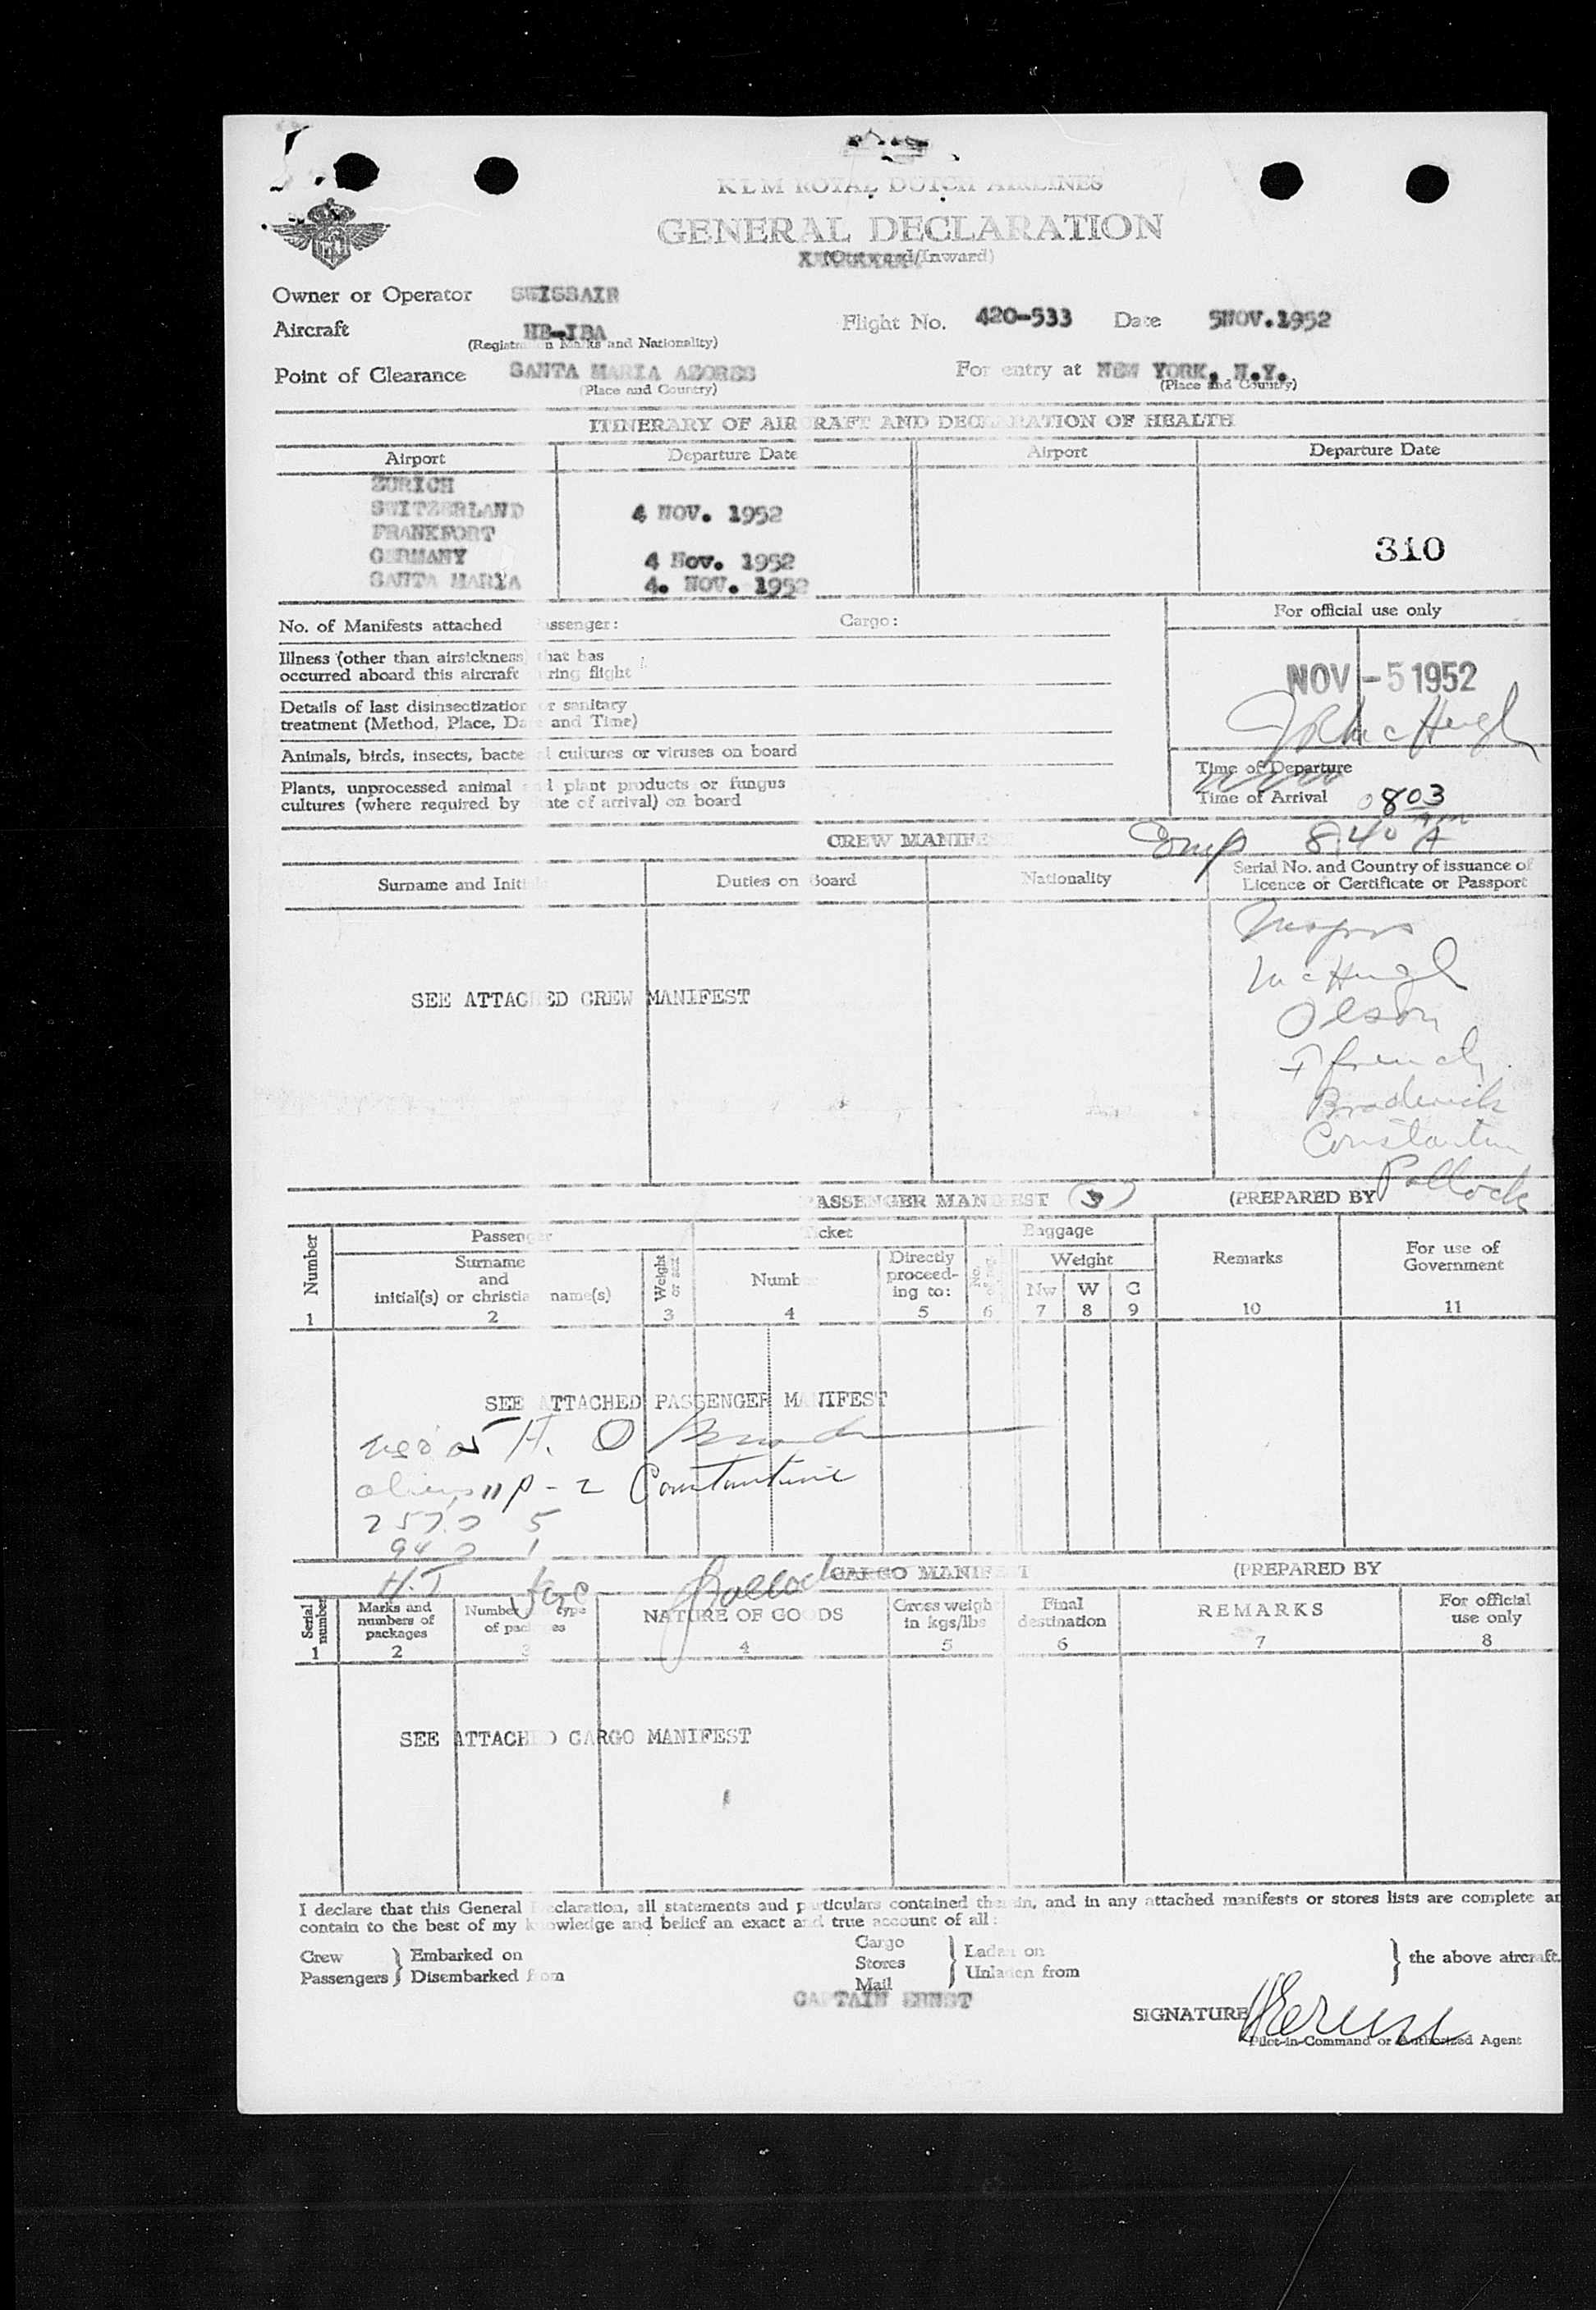 KLM ROYAL DUTCH AIRLINES
GENERAL DECLARATION
(Outward/Inward)
Owner or Operator SWISSAIR
Aircraft HB-IBA Flight No. 420-533 Date 5NOV.1952
(Registration Marks and Nationality)
Point of Clearance SANTA MARIA AZORES For entry at NEW YORK, N.Y.
(Place and Country) (Place and Country)
ITINERARY OF AIRCRAFT AND DECLARATION OF HEALTH
Airport Departure Date Airport Departure Date
ZURICH
SWITZERLAND 4 NOV. 1952
FRANKFORT
GERMANY 4 Nov. 1952
310
SANTA MARIA 4. NOV. 1952
No. of Manifests attached Passenger: Cargo: For official use only
Illness (other than airsickness) that has
occurred aboard this aircraft during flight
NOV -5 1952
Details of last disinsectization or sanitary
treatment (Method, Place, Date and Time)
JR McHugh
Animals, birds, insects, bacterial cultures or viruses on board
Time of Departure
Plants, unprocessed animal and plant products or fungus
cultures (where required by State of arrival) on board
Time of Arrival 0803
CREW MANIFEST Comp 8:40 A
Surname and Initials Duties on Board Nationality Serial No. and Country of issuance of
Licence or Certificate or Passport
McHugh
SEE ATTACHED CREW MANIFEST
Olson
French
Broderick
Constantine
Pollock
PASSENGER MANIFEST (PREPARED BY
Number Passenger Ticket Baggage Remarks For use of
Government
Surname
and
initial(s) or christian name(s) Weight Number Directly
proceed-
ing to: Weight
Nw W C
1 2 3 4 5 6 7 8 9 10 11
SEE ATTACHED PASSENGER MANIFEST
aliens 11 P - 2 Constantine
H.T Pollock
CARGO MANIFEST (PREPARED BY
Serial
number Marks and
numbers of
packages Number and type
of packages NATURE OF GOODS Gross weight
in kgs/lbs Final
destination REMARKS For official
use only
1 2 3 4 5 6 7 8
SEE ATTACHED CARGO MANIFEST
I declare that this General Declaration, all statements and particulars contained therein, and in any attached manifests or stores lists are complete an
contain to the best of my knowledge and belief an exact and true account of all:
Crew
Passengers } Embarked on
Disembarked from
Cargo
Stores
Mail } Laden on
Unladen from } the above aircraft.
CAPTAIN ERNST
SIGNATURE
Pilot-in-Command or Authorized Agent